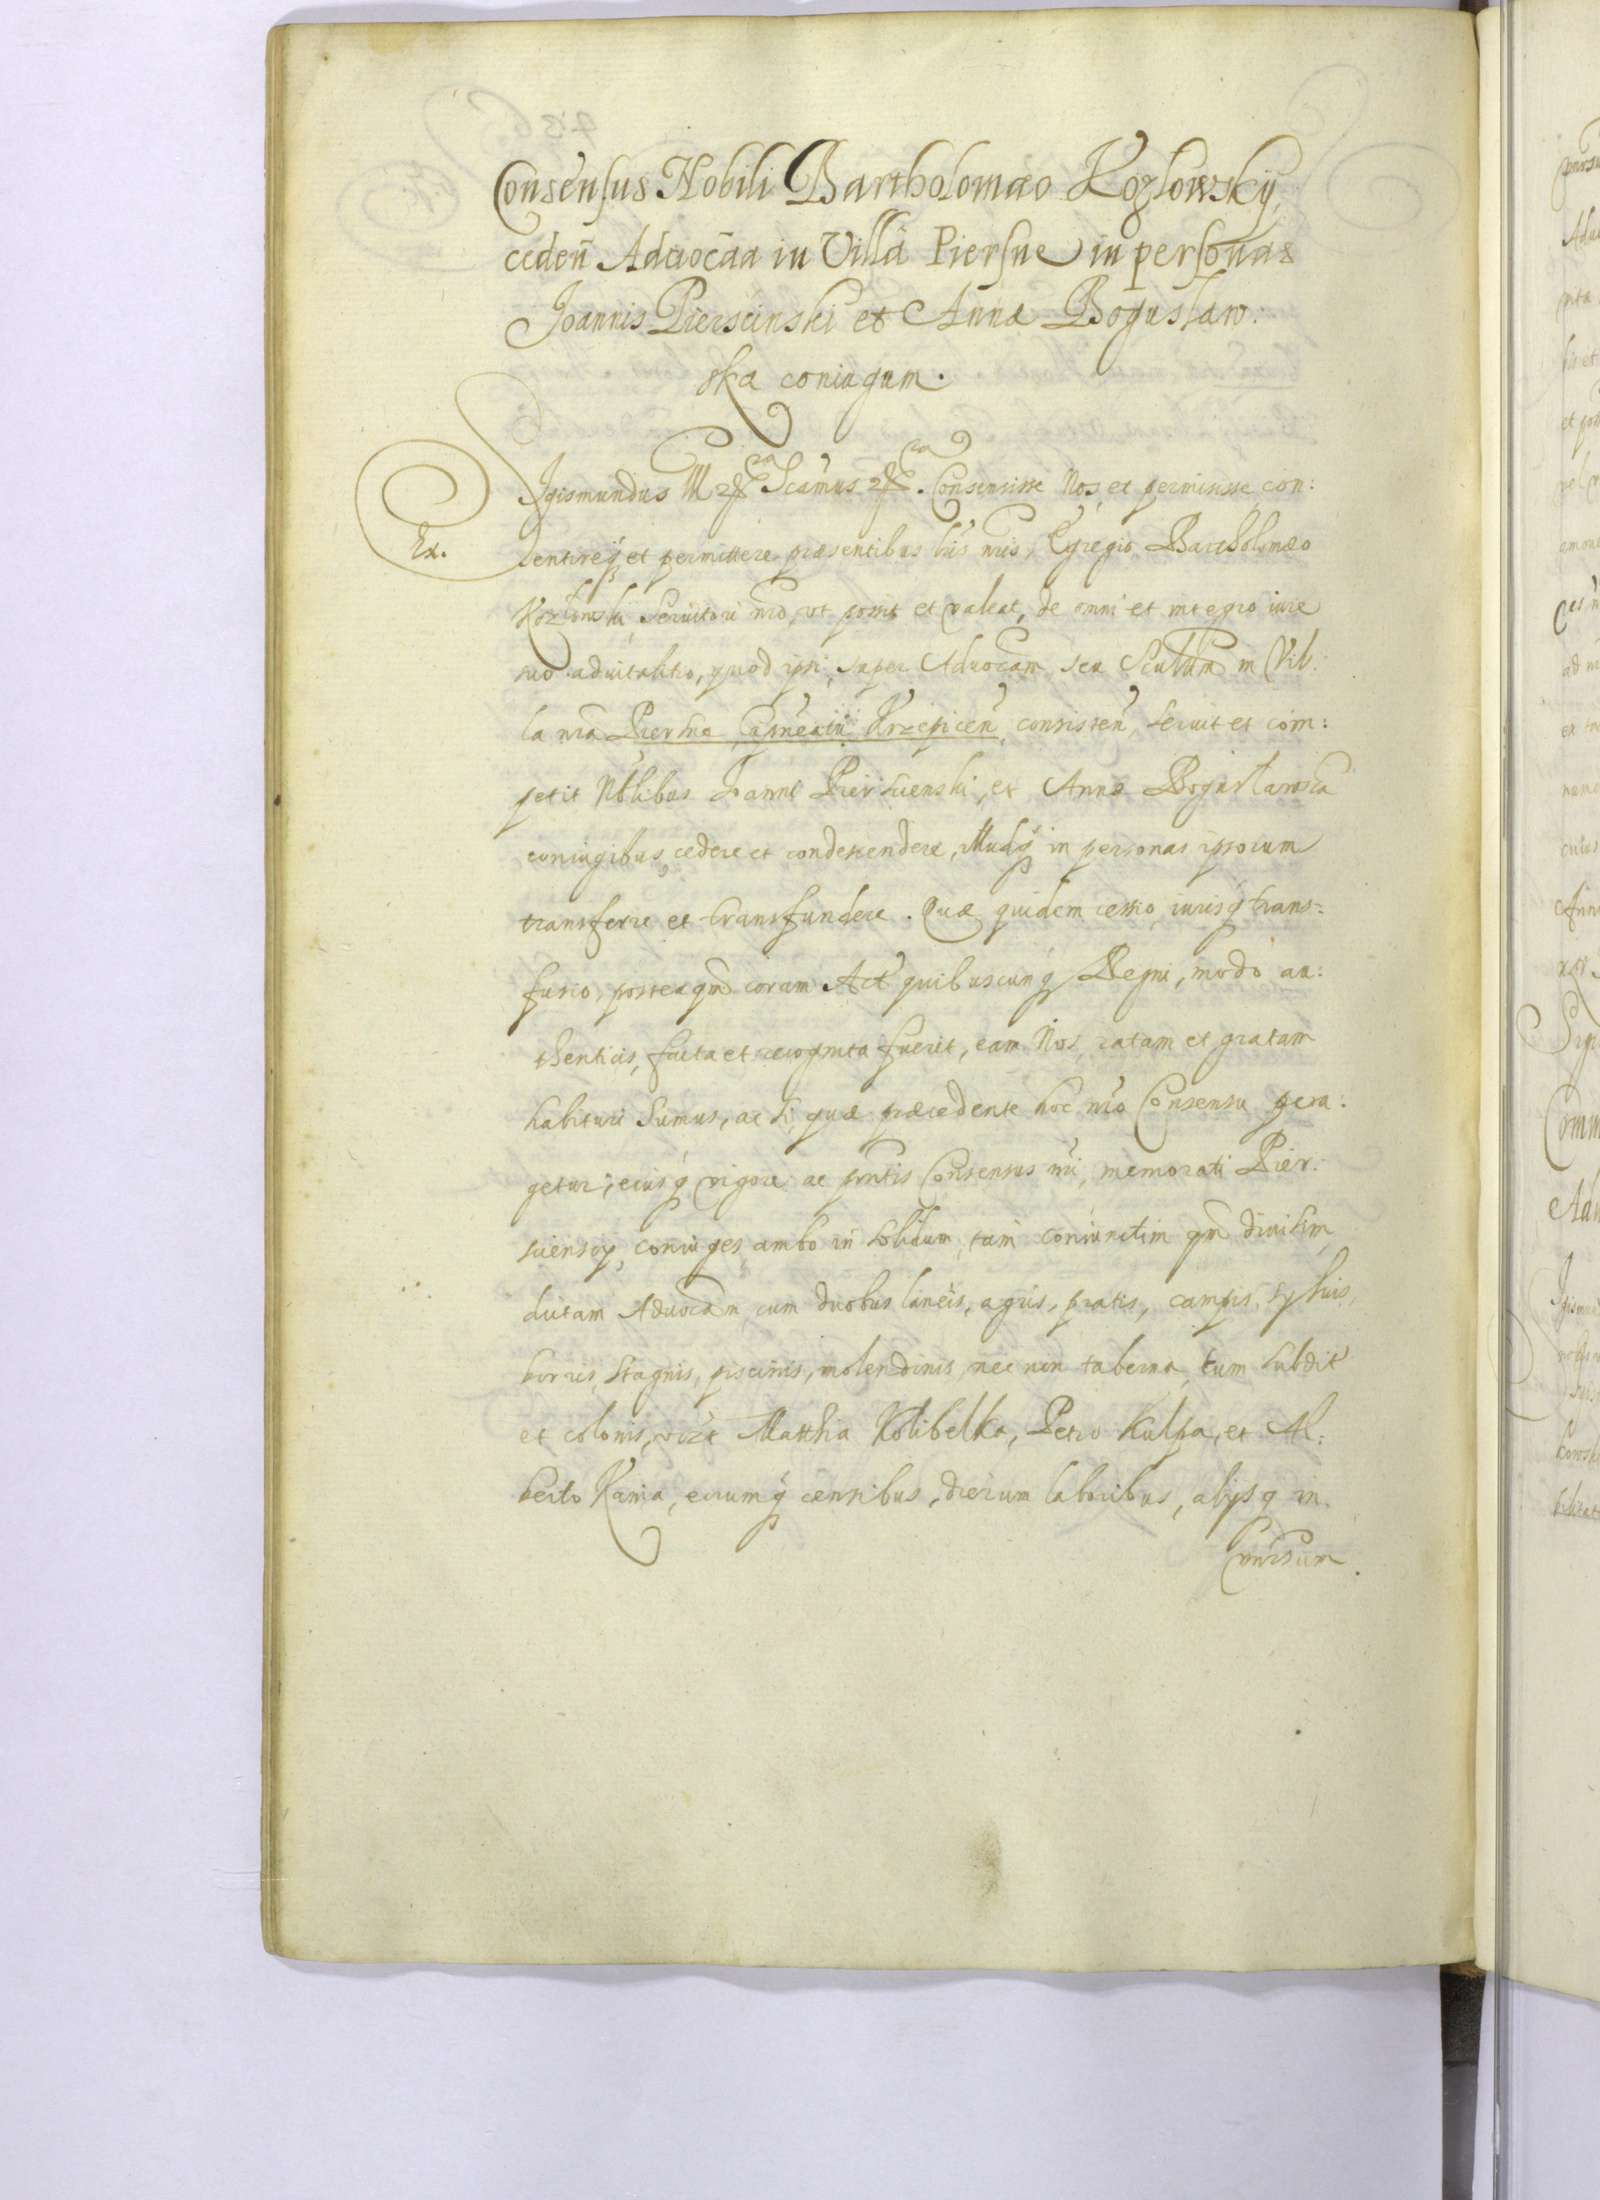 Consensus Nobili Bartholomæo Kozlowsky,
ceden̄ Aduocãa in Villa Piersne in personas
Joannis Pierscinski et Annæ Boguslaw:
skæ coniugum.
Sigismundus III Scãmus Consensisse Nos, et permisisse, con:
Ex.
sentireq̃ et permittere præsentibus lr̃is nr̃is, Egregio Bartholomæo
Kozlowski, Seruitori nr̃o, vt possit et valeat, de omni et integro iure
suo aduitalitio, quod ipsi, super Aduocãm seu Scultãm in Vil:
la nr̃a Piersna Krzepicen̄ consisten̄, seruit et com:
petit Nobilibus Joanni Pierscienski, et Annæ Boguslawska
coniugibus, cedere et condescendere, illudq̃ in personas ipsorum
transferre et transfundere. Quæ quidem cessio, iurisq̃ trans:
fusio, posteaqm̃ coram Act̃ quibuscunq̃ Regni, modò au:
thenticis, facta et recognita fuerit, eam Nos, ratam et gratam
habituri sumus, ac si, quæ præcedente hoc nr̃o Consensu pera:
getur, eiusq̃ vigore ac prñtis Consensus nr̃i, memorati Pier:
scienscy, coniuges, ambo in solidum, tam coniunctim qm̃ diuisim,
dictam Aduocãm cum duobus laneis, agris, pratis, campis, syluis,
borris, stagnis, piscinis, molendinis, nec non taberna, tum subdit̃
et colonis, vizt Matthia Kolibelka, Petro Kulpa, et Al:
berto Kania, eorumq̃ censibus, dierum laboribus, alijsq̃ in
vniuersum.